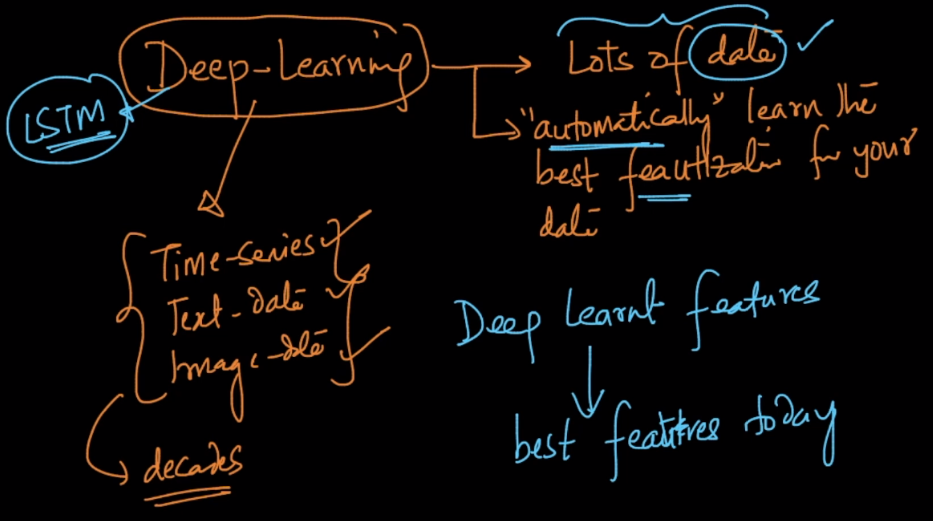 Deep-Learning
LSTM
Lots of data
"automatically" learn the
best feautization for your
data
Time-series
Text-data
Image-data
decades
Deep Learnt features
best features today